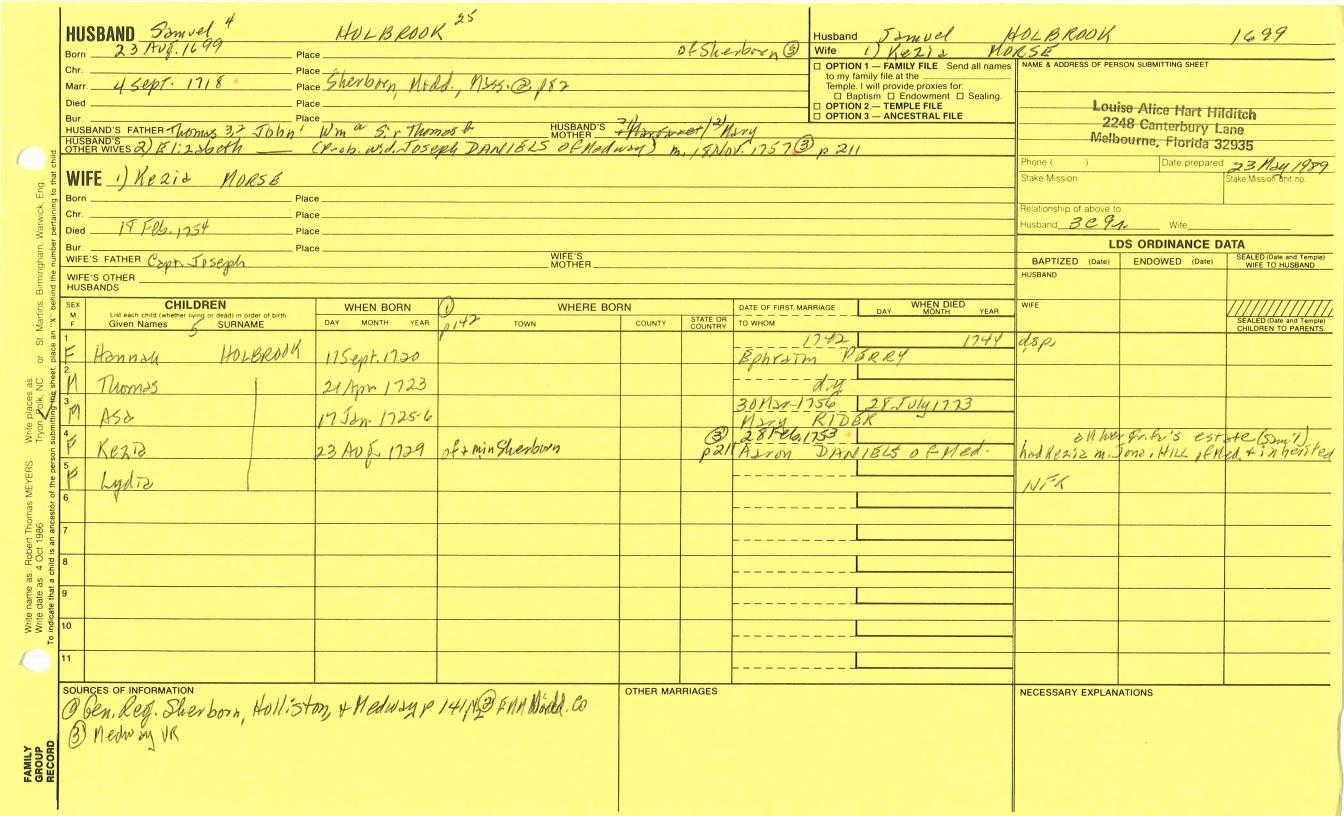 HUSBAND Samuel 4 HOLBROOK 25
Born 23 Aug. 1699 Place of Sherborn ③
Chr. Place
Marr. 4 Sept. 1718 Place Sherborn, Midd., Mass. ② p82
Died Place
Bur. Place
HUSBAND'S FATHER Thomas John Wm Sir Thomas HUSBAND'S MOTHER Margaret Mary
HUSBAND'S OTHER WIVES 2) Elizabeth (Prob. wid. Joseph DANIELS of Medway) m. 15 Nov. 1757 ③ p 211
Husband Samuel HOLBROOK 1699
Wife 1) Kezia MORSE
☐ OPTION 1 — FAMILY FILE Send all names
to my family file at the
Temple. I will provide proxies for:
☐ Baptism ☐ Endowment ☐ Sealing.
☐ OPTION 2 — TEMPLE FILE
☐ OPTION 3 — ANCESTRAL FILE
NAME & ADDRESS OF PERSON SUBMITTING SHEET
Louise Alice Hart Hilditch
2248 Canterbury Lane
Melbourne, Florida 32935
Phone ( ) Date prepared 23 May 1989
Stake Mission Stake/Mission unit no.
Relationship of above to
Husband 3C9r. Wife
WIFE 1) Kezia MORSE
Born Place
Chr. Place
Died 18 Feb. 1754 Place
Bur. Place
WIFE'S FATHER Capt. Joseph WIFE'S MOTHER
WIFE'S OTHER HUSBANDS
LDS ORDINANCE DATA
BAPTIZED (Date) ENDOWED (Date) SEALED (Date and Temple) WIFE TO HUSBAND
HUSBAND
WIFE
SEALED (Date and Temple) CHILDREN TO PARENTS
SEX M F
CHILDREN
List each child (whether living or dead) in order of birth
Given Names 5 SURNAME
WHEN BORN
DAY MONTH YEAR
① p142
WHERE BORN
TOWN COUNTY STATE OR COUNTRY
DATE OF FIRST MARRIAGE
TO WHOM
WHEN DIED
DAY MONTH YEAR
1 F Hannah HOLBROOK 11 Sept. 1720 1742 1744 dsp.
Ephraim PERRY
2 M Thomas 21 Apr 1723 d.y.
3 M Asa 17 Jan 1725-6 30 Mar 1756 28 July 1773
Mary RIDER
4 F Kezia 23 Aug 1729 of & m in Sherborn ③ p211 28 Feb. 1753
Aaron DANIELS of Med.
estate (Sam'l)
had Kezia m. Jona. HILL of Med. & inherited
5 F Lydia NFK
6
7
8
9
10
11
SOURCES OF INFORMATION
① Gen. Reg. Sherborn, Holliston, & Medway p 141, ② Midd. Co
③ Medway VR
OTHER MARRIAGES
NECESSARY EXPLANATIONS
Write name as: Robert Thomas MEYERS Write places as: Tryon, Polk, NC or St. Martins, Birmingham, Warwick, Eng.
Write date as: 4 Oct 1986
To indicate that a child is an ancestor of the person submitting the sheet, place an "X" behind the number pertaining to that child.
FAMILY
GROUP
RECORD